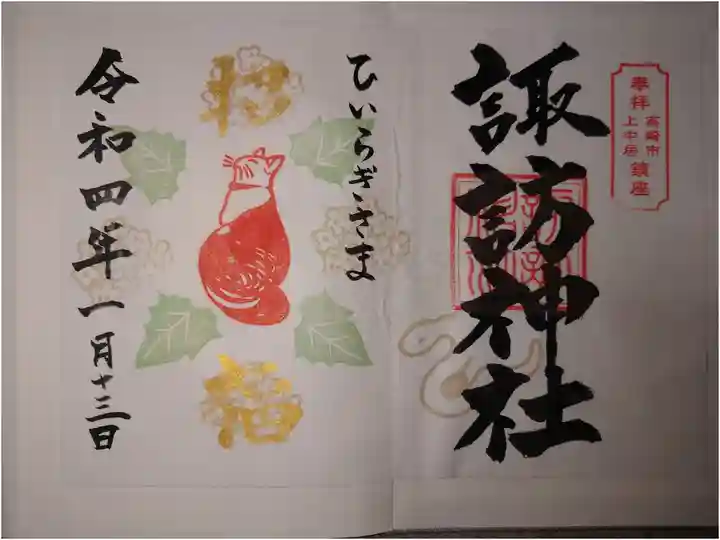 奉拝
高崎市
上中居
鎮座
諏訪神社
ひいらぎさま
招
福
令和四年一月十三日